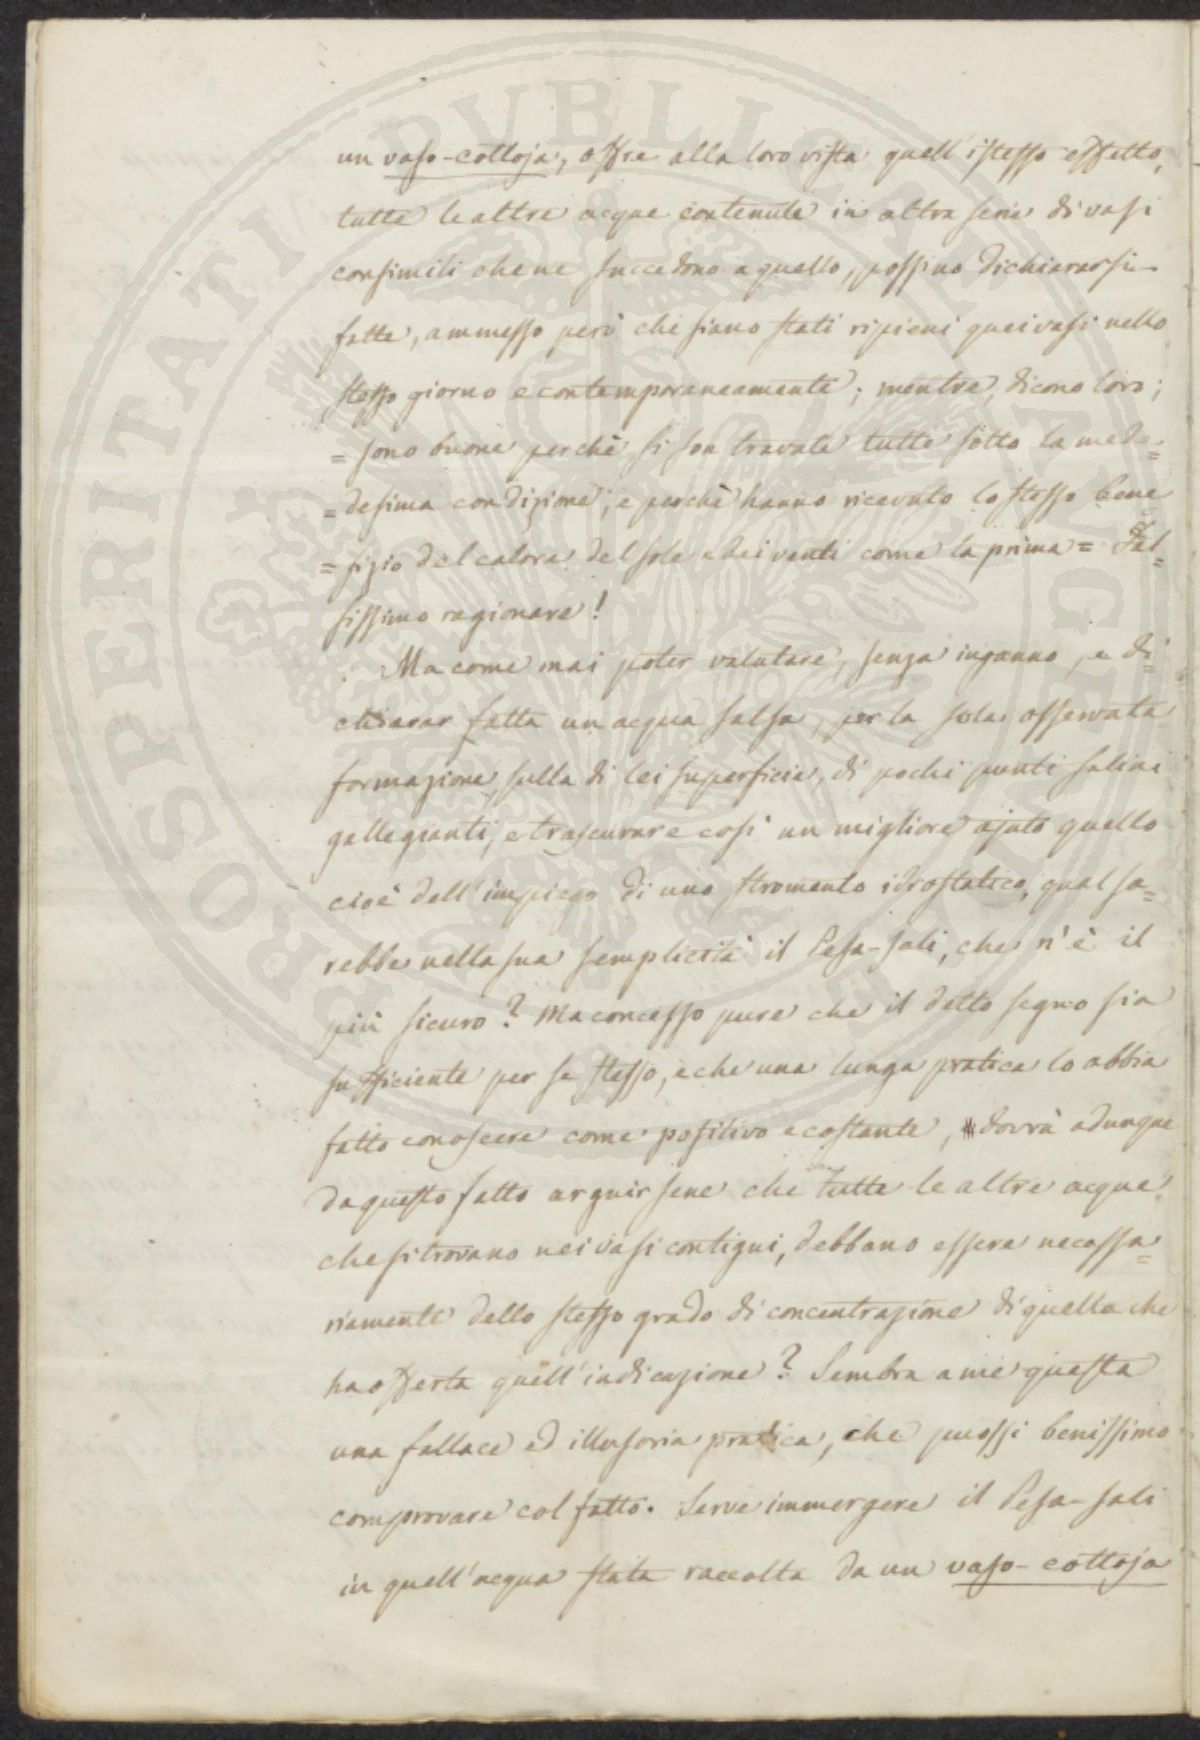 un vaso-cottoja, offre alla loro vista quell'istesso effetto,
tutte le altre acque contenute in altra serie di vasi
consimili che ne succedono a quello, possino dichiararsi
fatte, ammesso però che siano stati ripieni quei vasi nello
stesso giorno e contemporaneamente; mentre, dicono loro;
= sono buone perchè si son trovate tutte sotto la mede=
= desima condizione, e perchè hanno ricevuto lo stesso bene
= fizio del calore del sole e dei venti come la prima = Fal=
sissimo ragionare!
Ma come mai poter valutare, senza inganno, e di=
chiarar fatta un acqua salsa, per la sola osservata
formazione, sulla di lei superficie, di pochi punti salini
gallegianti, e trascurare così un migliore ajuto quello
cioè dell'impiego di uno stromento idrostatico, qual sa=
rebbe nella sua semplicità il Pesa-sali, che n'è il
più sicuro? Ma concesso pure che il detto segno sia
sufficiente per se stesso, e che una lunga pratica lo abbia
fatto conoscere come positivo e costante, dovrà adunque
da questo fatto arguirsene che tutte le altre acque
che si trovano nei vasi contigui, debbano essere necessa=
riamente dello stesso grado di concentrazione di quella che
ha offerta quell'indicazione? Sembra a me questa
una fallace ed illusoria pratica, che puossi benissimo
comprovare col fatto. Serve immergere il Pesa-sali
in quell'acqua stata raccolta da un vaso-cottoja
PROSPERITATI PUBLICAE AUGENDAE